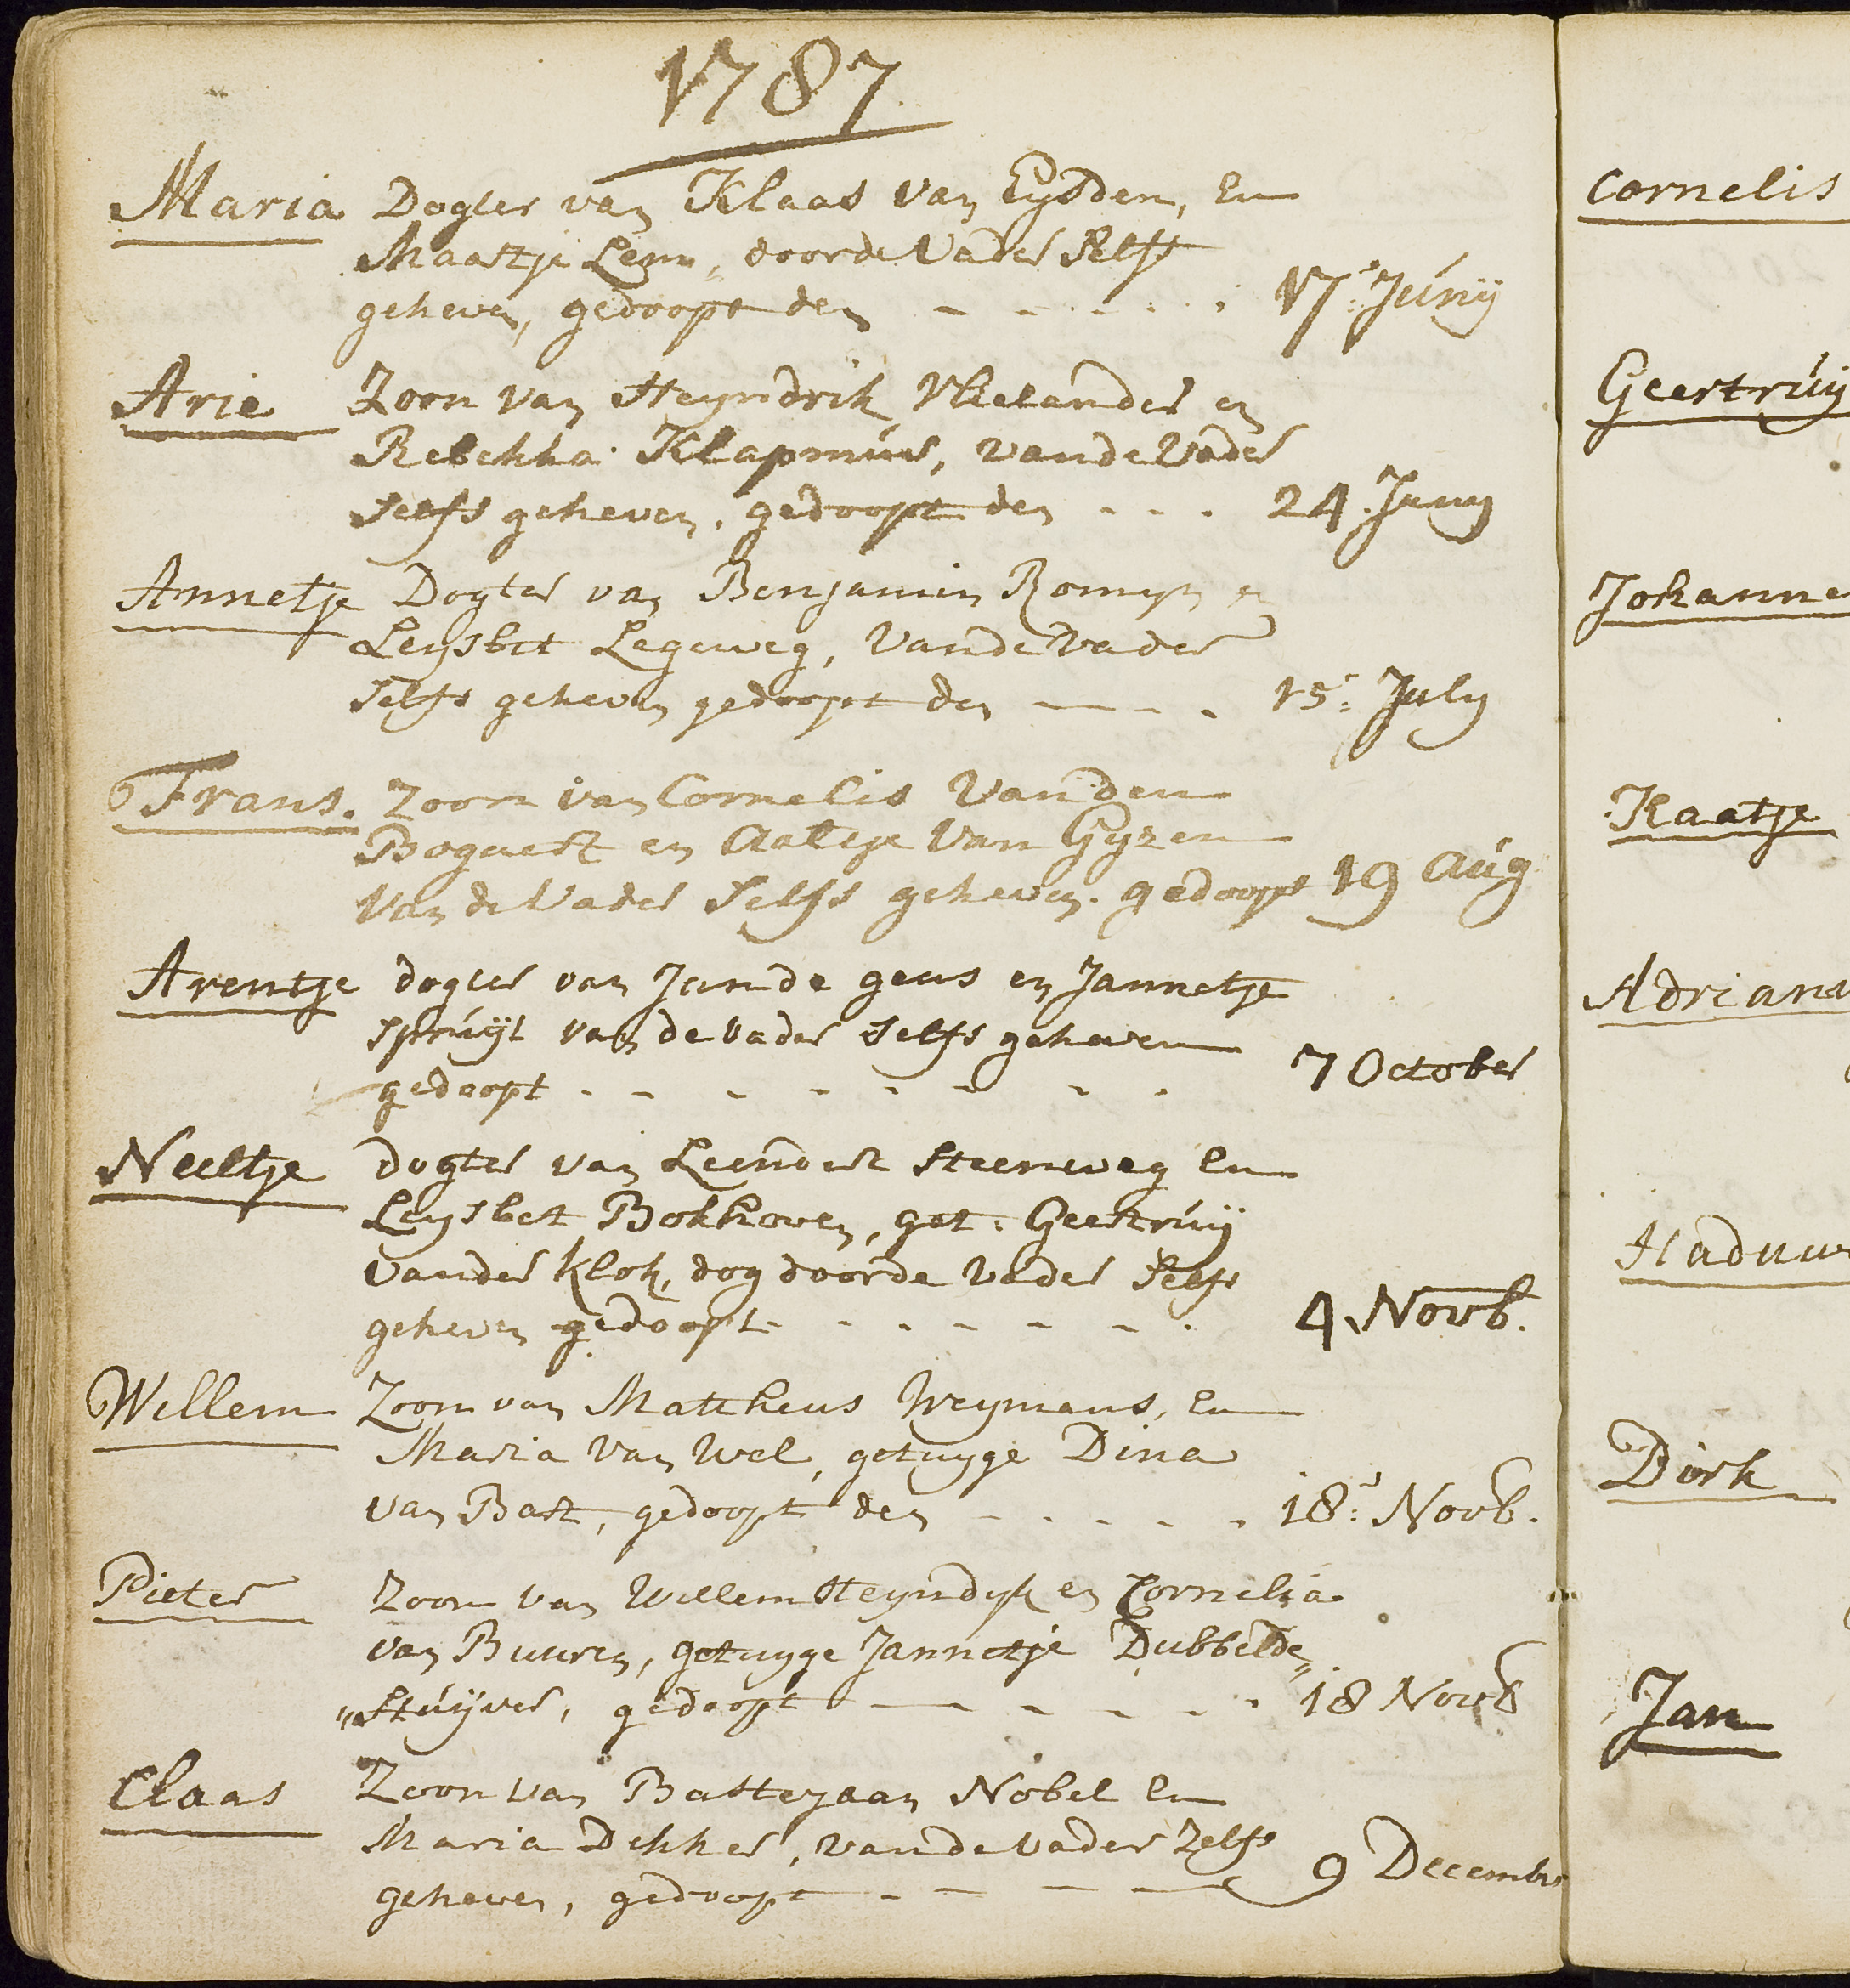 1787
Maria Dogter van Klaas van Eysden, En
Maartje Leni, doorde Vader Selfs
geheven, gedoopt den 17: Júnÿ
Arie Zoon van Heyndrik Vlielander en
Rebekka Klapmúts, vandeVader
selfs geheven, gedoopt den 24. Juny
Annetje Dogter van Benjamin Romyn en
Leysbet Legeweg, VandeVader
Selfs geheven gedoopt den 15: July
Frans. Zoon van Cornelis Vanden
Bogaert en Aaltje Van Gyzen
Van de Vader Selfs geheven. gedoopt 19 Aúg
Arentje dogter van Jan de geus en Jannetje
sprúÿt van de vader selfs geheven
gedoopt 7 October
Neeltje dogter van Leendert Steenweg En
Leysbet Bokhoven, get: Geertrúÿ
Vander Klok, dog doorde Vader Selfs
geheven gedoopt 4 Novb.
Willem Zoon van Mattheus Weymans, En
Maria Van Wel, getuyge Dina
van Bast, gedoopt den 18: Novb.
Pieter Zoon van Willem Heyndyk en Cornelia
van Buuren, getuyge Jannetje Dubbelde„
„Stúÿver, gedoopt 18 Novb
Claas Zoon van Basteyaan Nobel En
Maria Dekker, vandeVader Zelfs
geheven, gedoopt 9 Decembr
Cornelis
Geertrúÿ
Johanne
Kaatje
Adriana
Haduw
Dirk
Jan